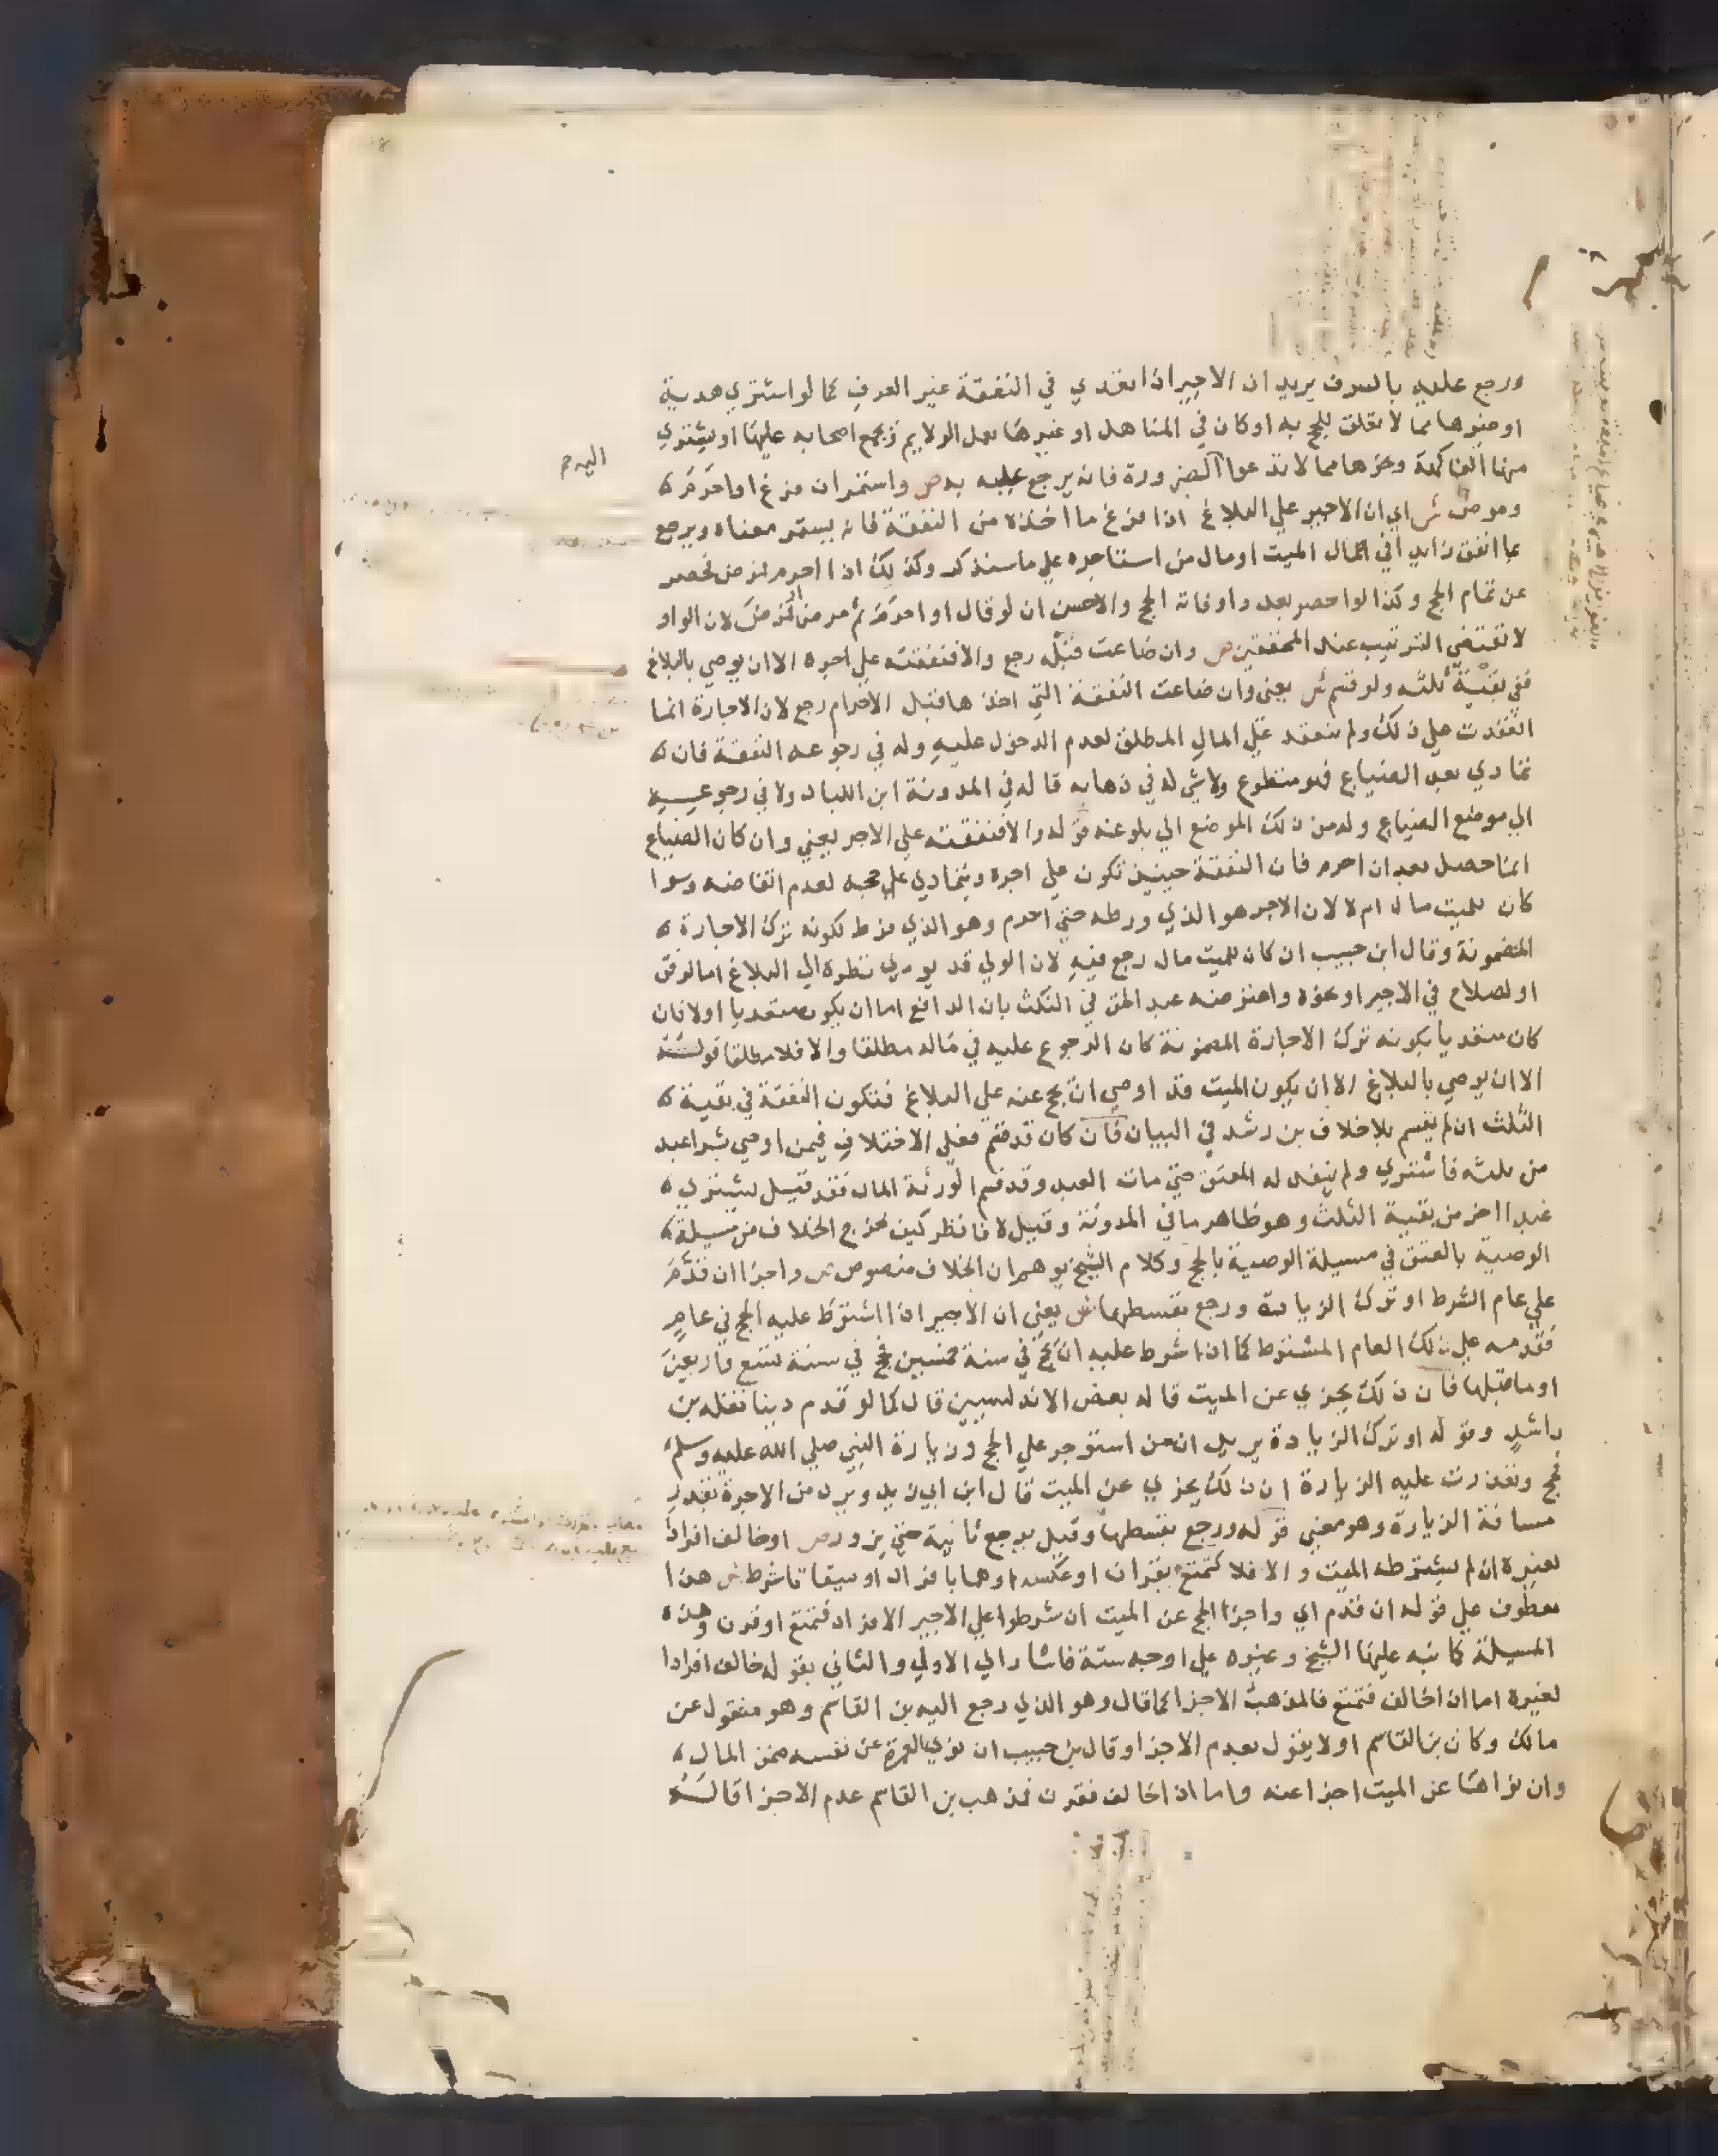 ورجع عليه بالسرف يريد ان الاجير اذا تعدي في النفقة غير العرف كما لو اشتري هدية
او صنوها مما لا تعلق للحج به او كان في المناهل او غيرها يعمل الولايم ويجمع اصحابه عليها او يشتري
منها الفاكهة ونحوها مما لا تدعوا الضرورة فانه يرجع عليه به ص واستمر ان فرغ او احرم
ومرض ش اي ان الاجير علي البلاغ اذا فرغ ما اخذه من النفقة فانه يستمر معناه ويرجع
بما انفق زايدا في مال الميت او مال من استاجره علي ما سنذكر وكذلك اذا احرم ثم مرض لحصر
عن تمام الحج وكذا لو احصر بعدو او فاته الحج والاحسن ان لو قال او احرم ثم مرض لان الواو
لا تقتضي الترتيب عند المحققين ص وان ضاعت قبله رجع والا فنفقته علي اجره الا ان يوصي بالبلاغ
ففي بقية ثلثه ولو قسم ش يعني وان ضاعت النفقة التي اخذها قبل الاحرام رجع لان الاجارة انما
انعقدت علي ذلك ولم تنعقد علي المال المطلق لعدم الدخول عليه وله في رجوعه النفقة فان
تمادي بعد الضياع فهو متطوع ولا شي له في ذهابه قاله في المدونة ابن اللباد ولا في رجوعه
الي موضع الضياع وله من ذلك الموضع الي بلوغه قوله والا فنفقته علي الاجر يعني وان كان الضياع
انما حصل بعد ان احرم فان النفقة حينيذ تكون علي اجره ويتمادي علي حجه لعدم انتقاضه وسوا
كان للميت مال ام لا لان الاجر هو الذي ورطه حتي احرم وهو الذي فرط لكونه ترك الاجارة
المضمونة وقال ابن حبيب ان كان للميت مال رجع فيه لان الولي قد يودي نظره الي البلاغ اما لرفق
او لصلاح في الاجير او نحوه واعترضه عبد الحق في النكث بان الدافع اما ان يكون متعديا او لا فان
كان متعديا بكونه ترك الاجارة المضمونة كان الرجوع عليه في ماله مطلقا والا فلا مطلقا قوله
الا ان يوصي بالبلاغ الا ان يكون الميت قد اوصي ان يحج عنه علي البلاغ فتكون النفقة في بقية
الثلث ان لم يقسم بلا خلاف بن رشد في البيان فان كان قد قسم فعلي الاختلاف فيمن اوصي بشرا عبد
من ثلثه فاشتري ولم ينفد له العتق حتي مات العبد وقد قسم الورثة المال فقد قيل يشتري
عبدا اخر من بقية الثلث وهو ظاهر ما في المدونة وقيل لا فانظر كيف خرج الخلاف من مسيلة
الوصية بالعتق في مسيلة الوصية بالحج وكلام الشيخ يوهم ان الخلاف منصوص ص واجزا ان قدم
علي عام الشرط او ترك الزيارة ورجع بقسطها ش يعني ان الاجير اذا اشترط عليه الحج في عام
فقدمه علي ذلك العام المشترط كما اذا شرط عليه ان يحج في سنة خمسين فحج في سنة تسع واربعين
او ما قبلها فان ذلك يجزي عن الميت قاله بعض الاندلسيين قال كما لو قدم دينا نقله بن
راشد وقوله او ترك الزيارة يريد ان من استوجر علي الحج وزيارة النبي صلي الله عليه وسلم
فحج وتعذرت عليه الزيارة ان ذلك يجزي عن الميت قال ابن ابي زيد ويرد من الاجرة بقدر
مسافة الزيارة وهو معني قوله ورجع بقسطها وقيل يرجع ثانية حتي يزور ص او خالف افرادا
لغيره ان لم يشترطه الميت والا فلا كتمتع بقران او عكسه او هما بافراد او ميقاتا شرط ش هذا
معطوف علي قوله ان قدم اي واجزا الحج عن الميت ان شرطوا علي الاجير الافراد فتمتع او قرن وهذه
المسيلة كما نبه عليها الشيخ وغيره علي اوجه ستة فاشار الي الاولي والثاني بقوله خالف افرادا
لغيره اما اذا خالف فتمتع فالمذهب الاجزا كما قال وهو الذي رجع اليه بن القاسم وهو منقول عن
مالك وكان بن القاسم اولا يقول بعدم الاجزا وقال بن حبيب ان نوي العمرة عن نفسه ضمن المال
وان نواها عن الميت اجزا عنه واما اذا خالف فقرن فمذهب بن القاسم عدم الاجزا قاله